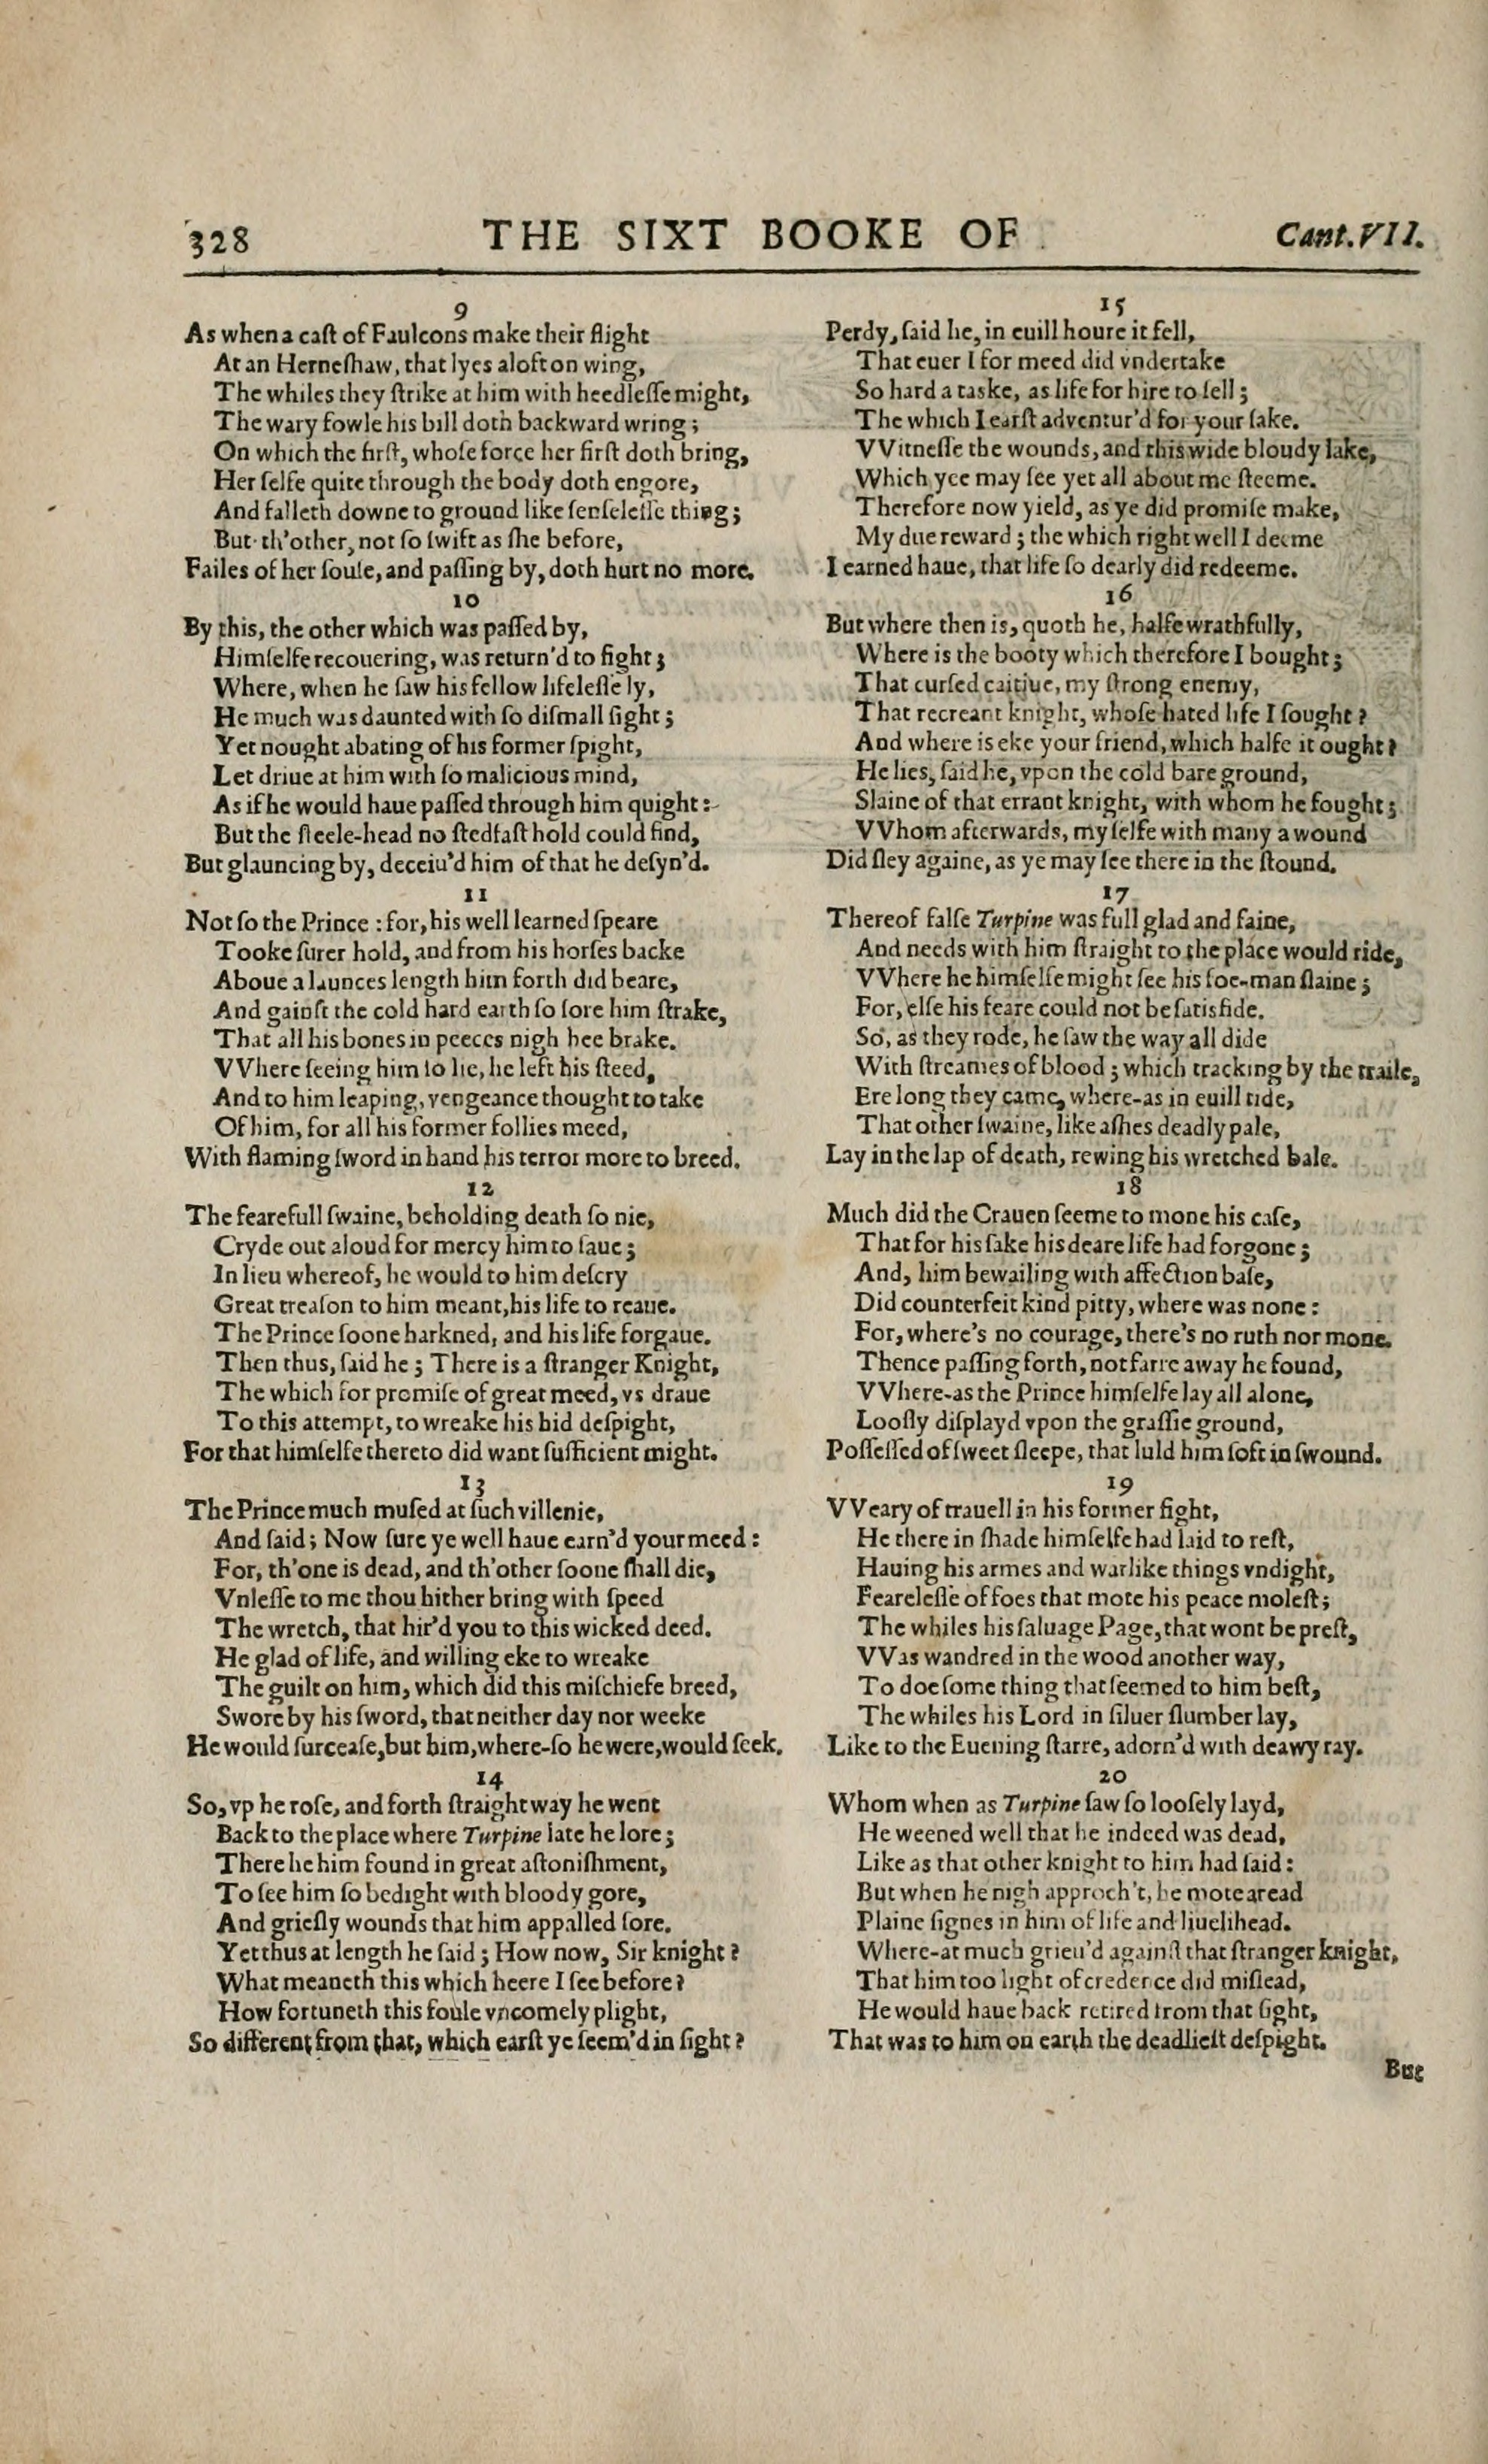 328 THE SIXT BOOKE OF Cant.VII.
9
As when a caſt of Faulcons make their flight
At an Herneſhaw, that lyes aloft on wing,
The whiles they ſtrike at him with heedleſſe might,
The wary fowle his bill doth backward wring;
On which the firſt, whoſe force her firſt doth bring,
Her ſelfe quite through the body doth engore,
And falleth downe to ground like ſenſeleſſe thing;
But th'other, not ſo ſwift as ſhe before,
Failes of her ſouſe, and paſſing by, doth hurt no more.
10
By this, the other which was paſſed by,
Himſelfe recouering, was return'd to fight;
Where, when he ſaw his fellow lifeleſſe ly,
He much was daunted with ſo diſmall ſight;
Yet nought abating of his former ſpight,
Let driue at him with ſo malicious mind,
As if he would haue paſſed through him quight:
But the ſteele-head no ſtedfaſt hold could find,
But glauncing by, deceiu'd him of that he deſyn'd.
11
Not ſo the Prince: for, his well learned ſpeare
Tooke ſurer hold, and from his horſes backe
Aboue a launces length him forth did beare,
And gainſt the cold hard earth ſo ſore him ſtrake,
That all his bones in peeces nigh hee brake.
VVhere ſeeing him ſo lie, he left his ſteed,
And to him leaping, vengeance thought to take
Of him, for all his former follies meed,
With flaming ſword in hand his terror more to breed.
12
The fearefull ſwaine, beholding death ſo nie,
Cryde out aloud for mercy him to ſaue;
In lieu whereof, he would to him deſcry
Great treaſon to him meant, his life to reaue.
The Prince ſoone harkned, and his life forgaue.
Then thus, ſaid he; There is a ſtranger Knight,
The which for promiſe of great meed, vs draue
To this attempt, to wreake his hid deſpight,
For that himſelfe thereto did want ſufficient might.
13
The Prince much muſed at ſuch villenie,
And ſaid; Now ſure ye well haue earn'd your meed:
For, th'one is dead, and th'other ſoone ſhall die,
Vnleſſe to me thou hither bring with ſpeed
The wretch, that hir'd you to this wicked deed.
He glad of life, and willing eke to wreake
The guilt on him, which did this miſchiefe breed,
Swore by his ſword, that neither day nor weeke
He would ſurceaſe, but him, where-ſo he were, would ſeek.
14
So, vp he roſe, and forth ſtraightway he went
Back to the place where Turpine late he lore;
There he him found in great aſtoniſhment,
To ſee him ſo bedight with bloody gore,
And grieſly wounds that him appalled ſore.
Yet thus at length he ſaid; How now, Sir knight?
What meaneth this which heere I ſee before?
How fortuneth this foule vncomely plight,
So different from that, which earſt ye ſeem'd in ſight?
15
Perdy, ſaid he, in euill houre it fell,
That euer I for meed did vndertake
So hard a taske, as life for hire to ſell;
The which I earſt adventur'd for your ſake.
VVitneſſe the wounds, and this wide bloudy lake,
Which yee may ſee yet all about me ſteeme.
Therefore now yield, as ye did promiſe make,
My due reward; the which right well I deeme
I earned haue, that life ſo dearly did redeeme.
16
But where then is, quoth he, halfe wrathfully,
Where is the booty which therefore I bought;
That curſed caitiue, my ſtrong enemy,
That recreant knight, whoſe hated life I ſought?
And where is eke your friend, which halfe it ought?
He lies, ſaid he, vpon the cold bare ground,
Slaine of that errant knight, with whom he fought;
VVhom afterwards, my ſelfe with many a wound
Did ſley againe, as ye may ſee there in the ſtound.
17
Thereof falſe Turpine was full glad and faine,
And needs with him ſtraight to the place would ride,
VVhere he himſelfe might ſee his foe-man ſlaine;
For, elſe his feare could not be ſatisfide.
So, as they rode, he ſaw the way all dide
With ſtreames of blood; which tracking by the traile,
Ere long they came, where-as in euill tide,
That other ſwaine, like aſhes deadly pale,
Lay in the lap of death, rewing his wretched bale.
18
Much did the Crauen ſeeme to mone his caſe,
That for his ſake his deare life had forgone;
And, him bewailing with affection baſe,
Did counterfeit kind pitty, where was none:
For, where's no courage, there's no ruth nor mone.
Thence paſſing forth, not farre away he found,
VVhere-as the Prince himſelfe lay all alone,
Looſly diſplayd vpon the graſſie ground,
Poſſeſſed of ſweet ſleepe, that luld him ſoft in ſwound.
19
VVeary of trauell in his former fight,
He there in ſhade himſelfe had laid to reſt,
Hauing his armes and warlike things vndight,
Feareleſſe of foes that mote his peace moleſt;
The whiles his ſaluage Page, that wont be preſt,
VVas wandred in the wood another way,
To doe ſome thing that ſeemed to him beſt,
The whiles his Lord in ſiluer ſlumber lay,
Like to the Euening ſtarre, adorn'd with deawy ray.
20
Whom when as Turpine ſaw ſo looſely layd,
He weened well that he indeed was dead,
Like as that other knight to him had ſaid:
But when he nigh approch't, he mote aread
Plaine ſignes in him of life and liuelihead.
Where-at much grieu'd againſt that ſtranger knight,
That him too light of credence did miſlead,
He would haue back retired from that ſight,
That was to him on earth the deadlieſt deſpight.
But